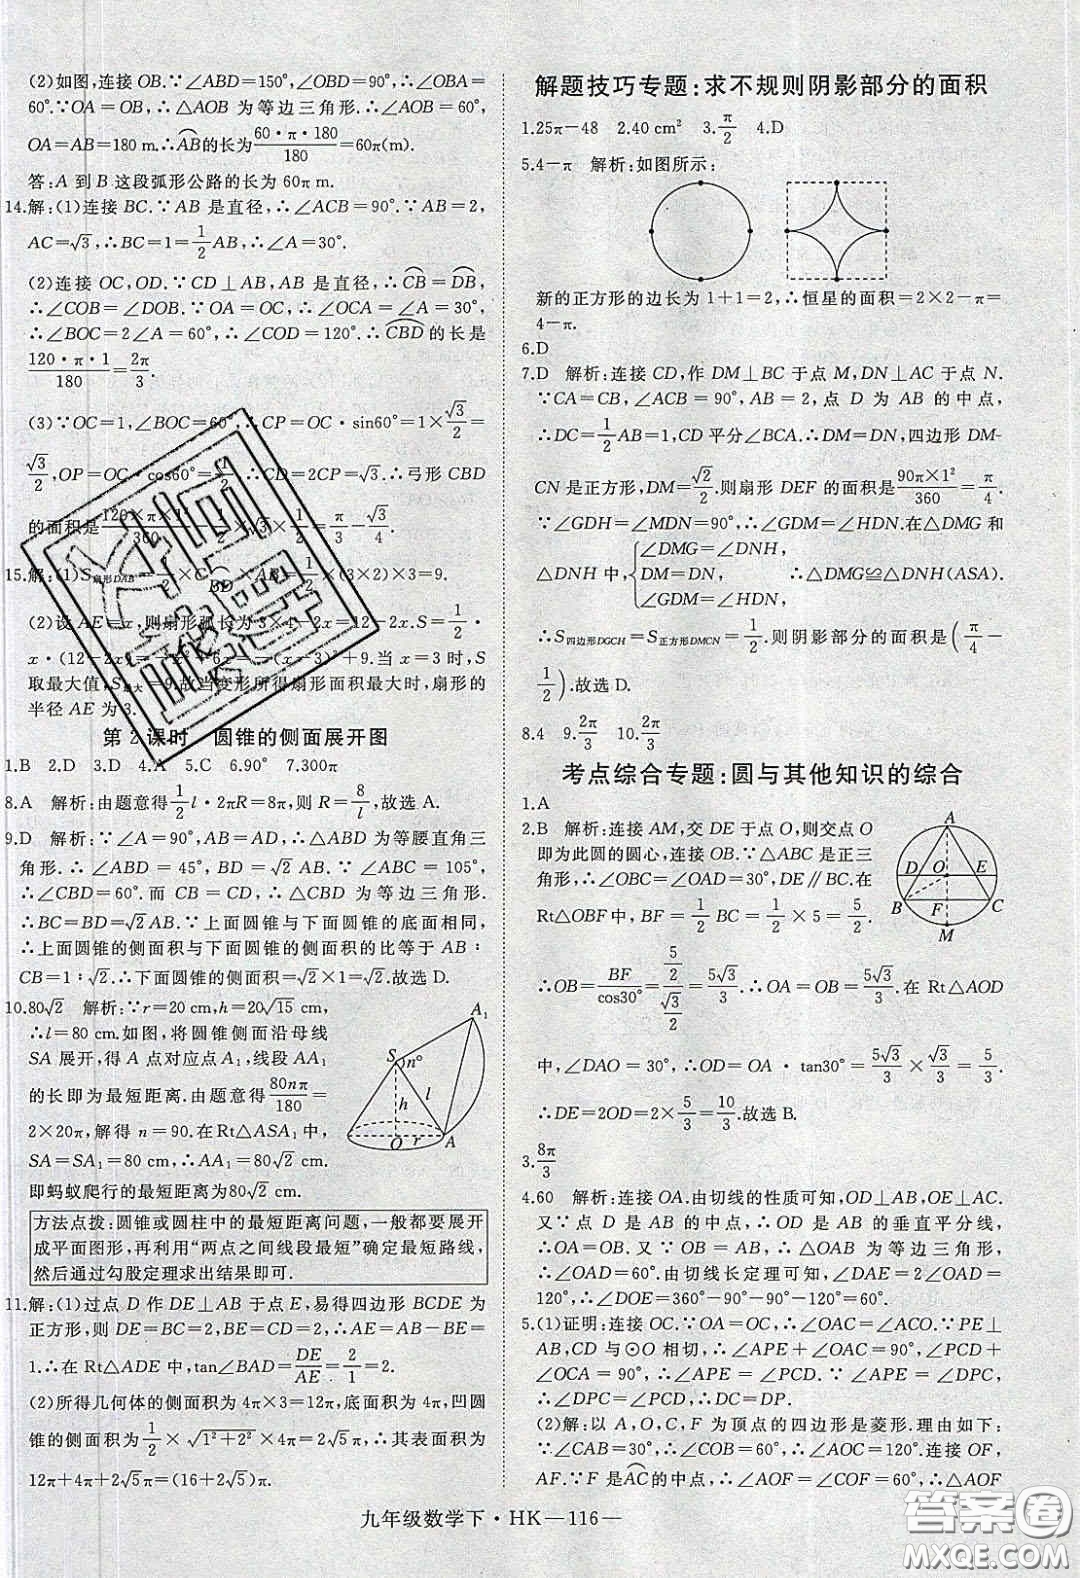 (2)如图,连接 OB.∵∠ABD=150°,∠OBD=90°,∴∠OBA=
60°.∵OA=OB,∴△AOB 为等边三角形.∴∠AOB=60°,
OA=AB=180 m.∴AB的长为60·π·180/180=60π(m).
答:A 到 B 这段弧形公路的长为 60π m.
14.解:(1)连接 BC.∵AB 是直径,∴∠ACB=90°.∵AB=2,
AC=√3,∴BC=1=1/2AB,∴∠A=30°.
(2)连接 OC,OD.∵CD⊥AB,AB 是直径,∴CB=DB,
∴∠COB=∠DOB.∵OA=OC,∴∠OCA=∠A=30°,
∴∠BOC=2∠A=60°,∴∠COD=120°.∴CBD 的长是
120·π·1/180=2π/3.
(3)∵OC=1,∠BOC=60°,∴CP=OC·sin60°=1×√3/2=
√3/2,OP=OC·cos60°=1/2,∴CD=2CP=√3.∴弓形 CBD
的面积是120×π×1²/360-1/2×√3×1/2=π/3-√3/4.
15.解:(1)S扇形DAB=1/2×BD×AB=1/2×(3×2)×3=9.
(2)设 AE=x,则扇形弧长为 3×4-2x=12-2x.S=1/2·
x·(12-2x)=-x²+6x=-(x-3)²+9.当 x=3 时,S
取最大值,S最大=9.故当变形所得扇形面积最大时,扇形的
半径 AE 为 3.
第 2 课时 圆锥的侧面展开图
1.B 2.D 3.D 4.A 5.C 6.90° 7.300π
8.A 解析:由题意得1/2l·2πR=8π,则 R=8/l,故选 A.
9.D 解析:∵∠A=90°,AB=AD,∴△ABD 为等腰直角三
角形.∴∠ABD=45°,BD=√2AB.∵∠ABC=105°,
∴∠CBD=60°.而 CB=CD,∴△CBD 为等边三角形.
∴BC=BD=√2AB.∵上面圆锥与下面圆锥的底面相同,
∴上面圆锥的侧面积与下面圆锥的侧面积的比等于 AB∶
CB=1∶√2.∴下面圆锥的侧面积=√2×1=√2.故选 D.
10.80√2 解析:∵r=20 cm,h=20√15 cm,
∴l=80 cm.如图,将圆锥侧面沿母线
SA 展开,得 A 点对应点 A₁,线段 AA₁
的长即为最短距离.由题意得80nπ/180=
2×20π,解得 n=90.在Rt△ASA₁中,
SA=SA₁=80 cm,∴AA₁=80√2 cm.
即蚂蚁爬行的最短距离为80√2 cm.
A₁
S
n°
l
h
O
r
A
方法点拨:圆锥或圆柱中的最短距离问题,一般都要展开
成平面图形,再利用“两点之间线段最短”确定最短路线,
然后通过勾股定理求出结果即可.
11.解:(1)过点 D 作 DE⊥AB 于点 E,易得四边形 BCDE 为
正方形,则 DE=BC=2,BE=CD=2,∴AE=AB-BE=
1.∴在 Rt△ADE 中,tan∠BAD=DE/AE=2/1=2.
(2)所得几何体的侧面积为 4π×3=12π,底面积为 4π,凹圆
锥的侧面积为1/2×√(1²+2²)×4π=2√5π,∴其表面积为
12π+4π+2√5π=(16+2√5)π.
解题技巧专题:求不规则阴影部分的面积
1.25π-48 2.40 cm² 3.π/2 4.D
5.4-π 解析:如图所示:
新的正方形的边长为 1+1=2,∴恒星的面积=2×2-π=
4-π.
6.D
7.D 解析:连接 CD,作 DM⊥BC 于点 M,DN⊥AC 于点 N.
∵CA=CB,∠ACB=90°,AB=2,点 D 为 AB 的中点,
∴DC=1/2AB=1,CD 平分∠BCA.∴DM=DN,四边形 DM-
CN 是正方形,DM=√2/2.则扇形 DEF 的面积是90π×1²/360=π/4.
∵∠GDH=∠MDN=90°,∴∠GDM=∠HDN.在△DMG 和
△DNH 中,{∠DMG=∠DNH, DM=DN, ∠GDM=∠HDN, ∴△DMG≌△DNH(ASA).
∴S四边形DGCH=S正方形DMCN=1/2.则阴影部分的面积是(π/4-
1/2).故选 D.
8.4 9.2π/3 10.2π/3
考点综合专题:圆与其他知识的综合
1.A
2.B 解析:连接 AM,交 DE 于点 O,则交点 O
即为此圆的圆心,连接 OB.∵△ABC 是正三
角形,∴∠OBC=∠OAD=30°,DE∥BC.在
Rt△OBF 中,BF=1/2BC=1/2×5=5/2,
A
D
O
E
B
F
C
M
∴OB=BF/cos30°=(5/2)/(√3/2)=5√3/3.∴OA=OB=5√3/3.在 Rt△AOD
中,∠DAO=30°,∴OD=OA·tan30°=5√3/3×√3/3=5/3.
∴DE=2OD=2×5/3=10/3.故选 B.
3.8π/3
4.60 解析:连接 OA.由切线的性质可知,OD⊥AB,OE⊥AC.
又∵点 D 是 AB 的中点,∴OD 是 AB 的垂直平分线,
∴OA=OB.∴OA=AB=OB,∴△OAB 为等边三角形,
∴∠OAD=60°.由切线长定理可知,∠DAE=2∠OAD=
120°,∴∠DOE=360°-90°-90°-120°=60°.
5.(1)证明:连接 OC.∵OA=OC,∴∠OAC=∠OCA.∵PE⊥
AB,CD 与⊙O 相切于点 C,∴∠APE+∠PAE=∠PCD
+∠OCA=90°,∴∠APE=∠PCD.∵∠APE=
∠DPC,∴∠DPC=∠PCD,∴DC=DP.
(2)解:以 A,O,C,F 为顶点的四边形是菱形.理由如下:
∵∠CAB=30°,∴∠COB=60°,∴∠AOC=120°.连接 OF,
AF.∵F 是AC的中点,∴∠AOF=∠COF=60°.∴△AOF
九年级数学下·HK—116—
答案圈
MXQE.COM